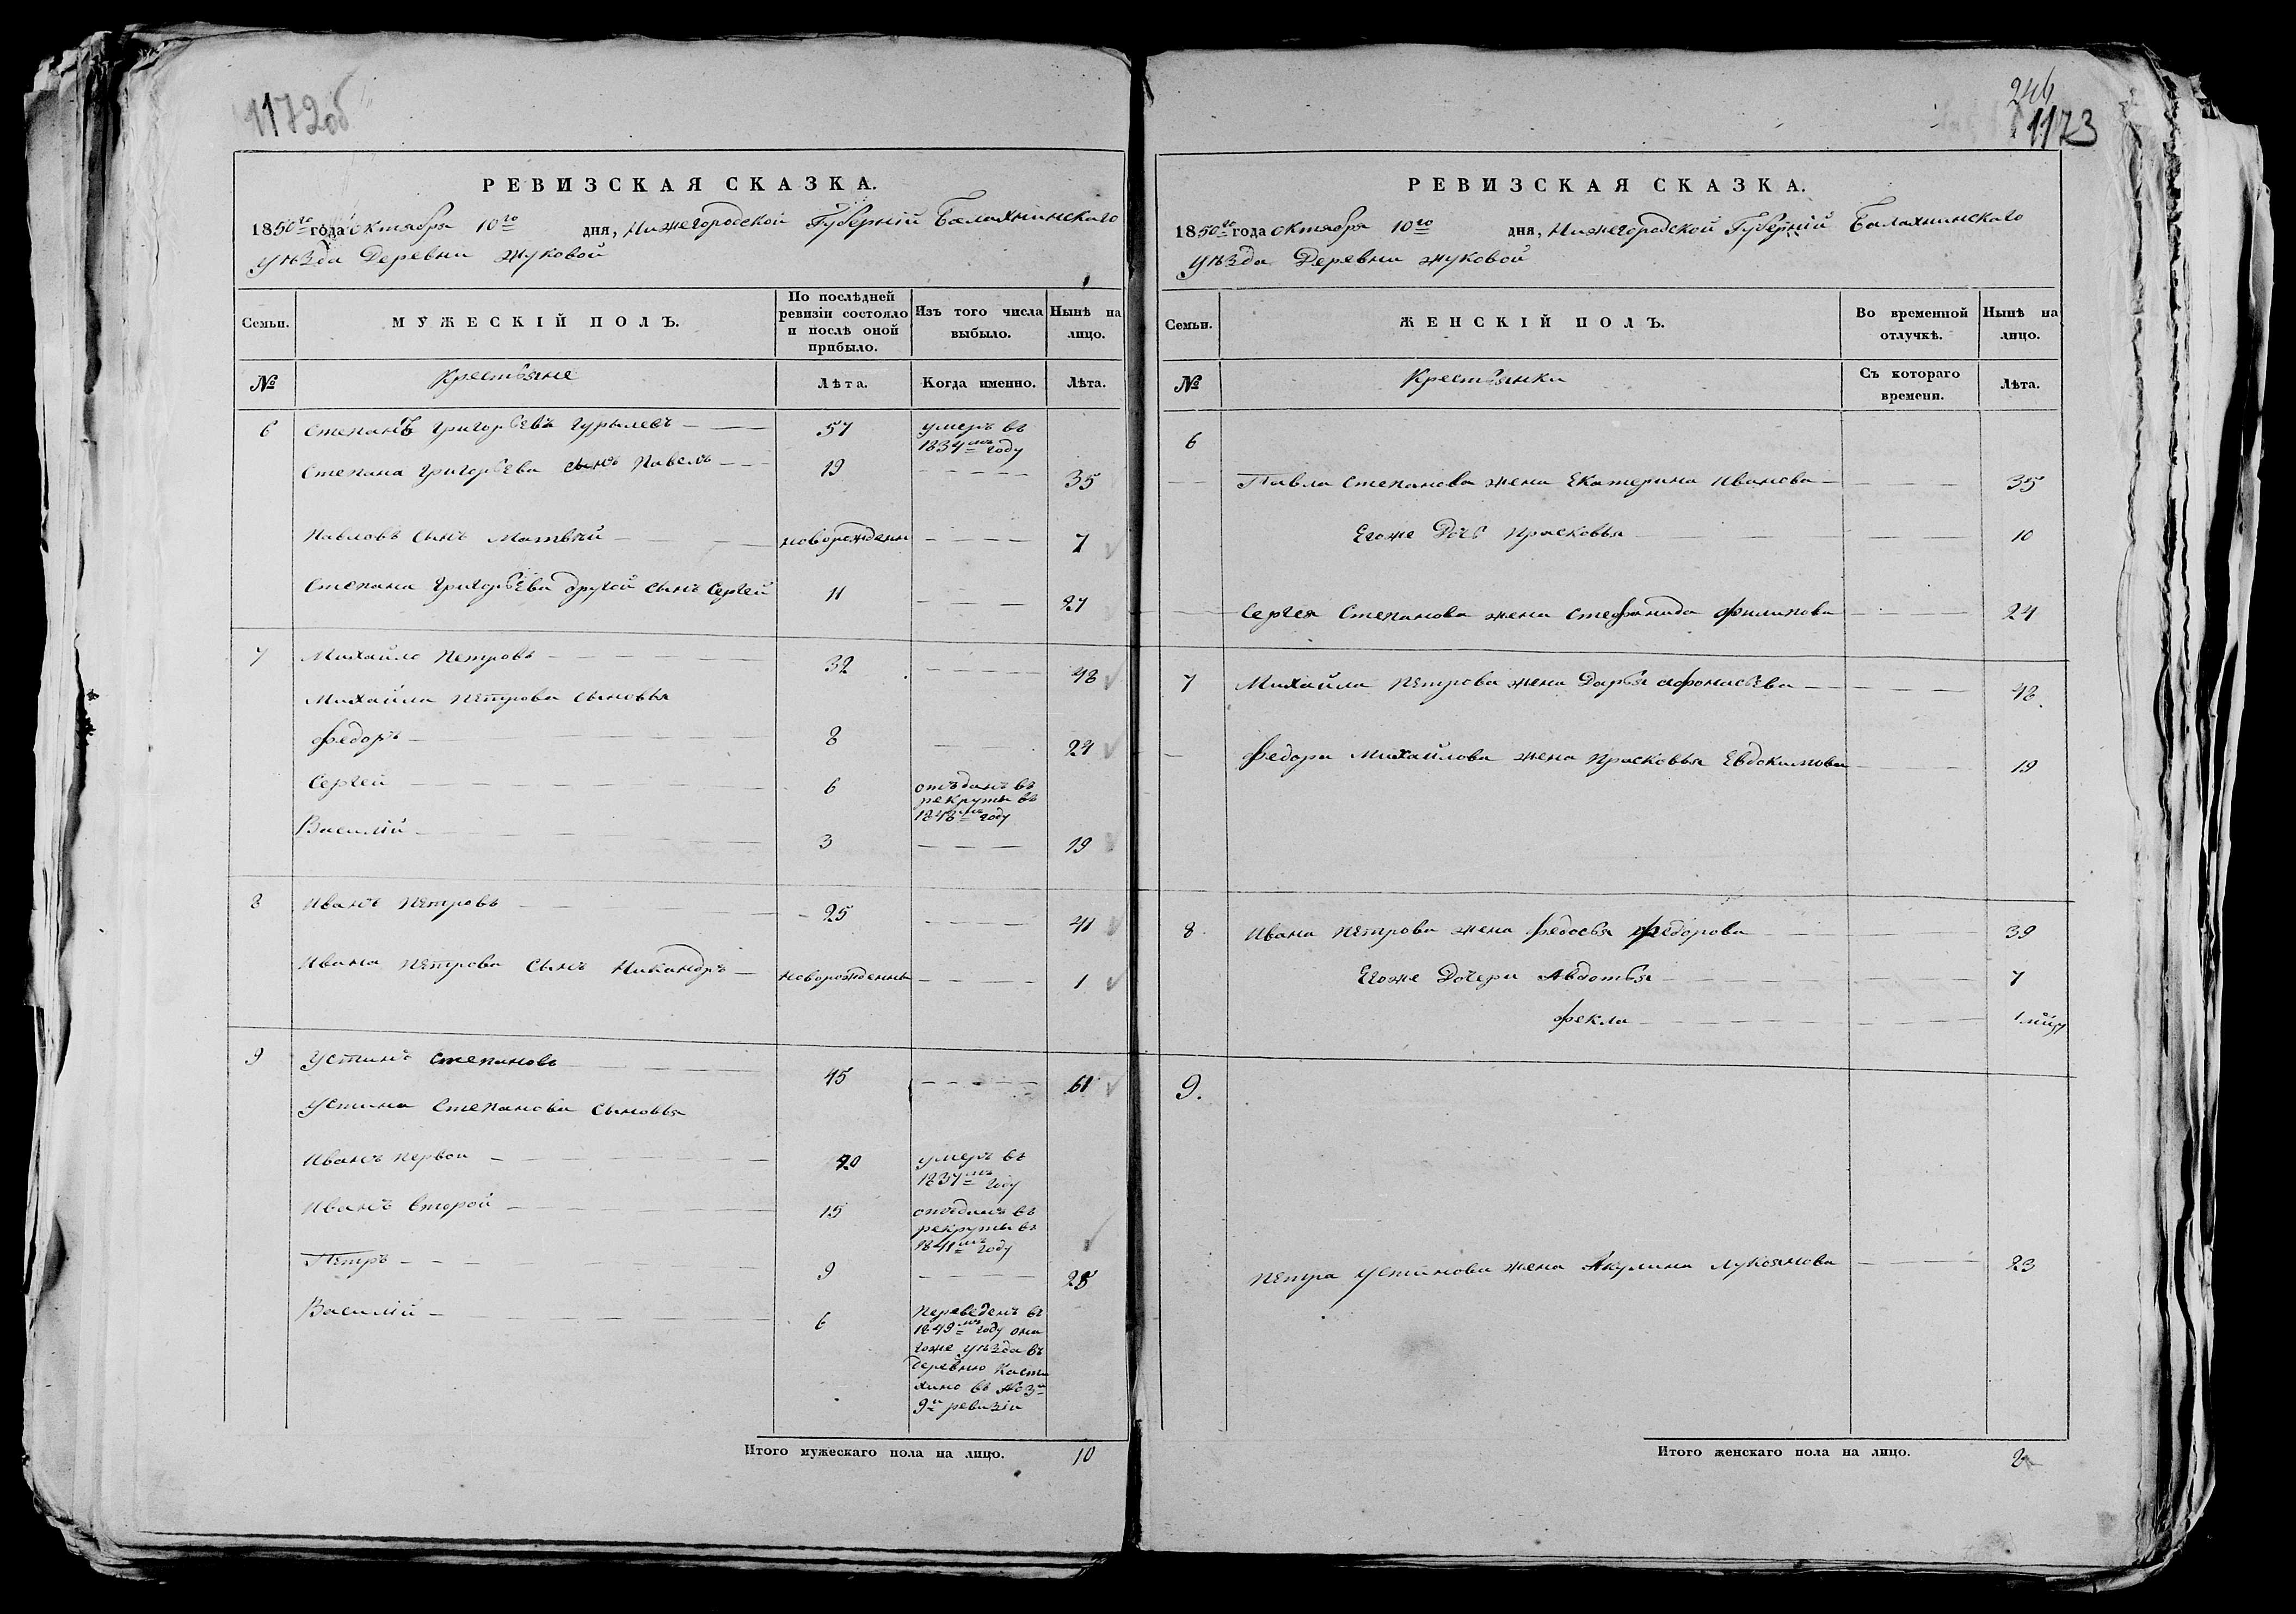 1172об
РЕВИЗСКАЯ СКАЗКА.
1850го года октября 10го дня, Нижегородской Губерній Балахнинскаго
уѣзда Деревни жуковой
Семьи.
МУЖЕСКІЙ ПОЛЪ.
По послѣдней ревизіи состояло и послѣ оной прибыло.
Изъ того числа выбыло.
Нынѣ на лицо.
№
Крестьяне
Лѣта.
Когда именно.
Лѣта.
6 Степанъ Григорьевъ Гурылевъ 57 умеръ въ
1834мъ году
Степана Григорьева сынъ Павелъ 19 35
Павловъ Сынъ Матвѣй новорожденн 7
Степана Григорьева другой сынъ Сергей 11 27
7 Михайло Петровъ 32 48
Михайла Петрова сыновья
Федоръ 8 24
Сергей 6 отъданъ въ
рекруты въ
1848мъ году
Василій 3 19
8 Иванъ Петровъ 25 41
Ивана Петрова Сынъ Никандръ новорожденны 1
9 Устинъ Степановъ 45 61
Устина Степанова Сыновья
Иванъ первой 20 умеръ въ
1837мъ году
Иванъ второй 15 отъданъ въ
рекруты въ
1841мъ году
Петръ 9 25
Василій 6 Переведенъ въ
1849мъ году она
гоже уѣзда въ
деревню Касти
хино въ № 3й
9й ревизіи
Итого мужескаго пола на лицо. 10
246
1173
РЕВИЗСКАЯ СКАЗКА.
1850го года октября 10го дня, Нижегородской Губерній Балахнинскаго
уѣзда Деревни жуковой
Семьи.
ЖЕНСКІЙ ПОЛЪ.
Во временной отлучкѣ.
Нынѣ на лицо.
№
Крестьянки
Съ котораго времени.
Лѣта.
6
Павла Степанова жена Екатерина Иванова 35
Егоже Дочь Прасковья 10
Сергея Степанова жена Стефанида Филипова 24
7 Михайла Петрова жена Дарья Афонасьева 48
Федора Михайлова жена Прасковья Евдокимова 19
8 Ивана Петрова жена Федосья Федорова 39
Егоже Дочери Авдотья 7
Фекла
9.
Петра Устинова жена Акулина Лукоянова 23
Итого женскаго пола на лицо. 8